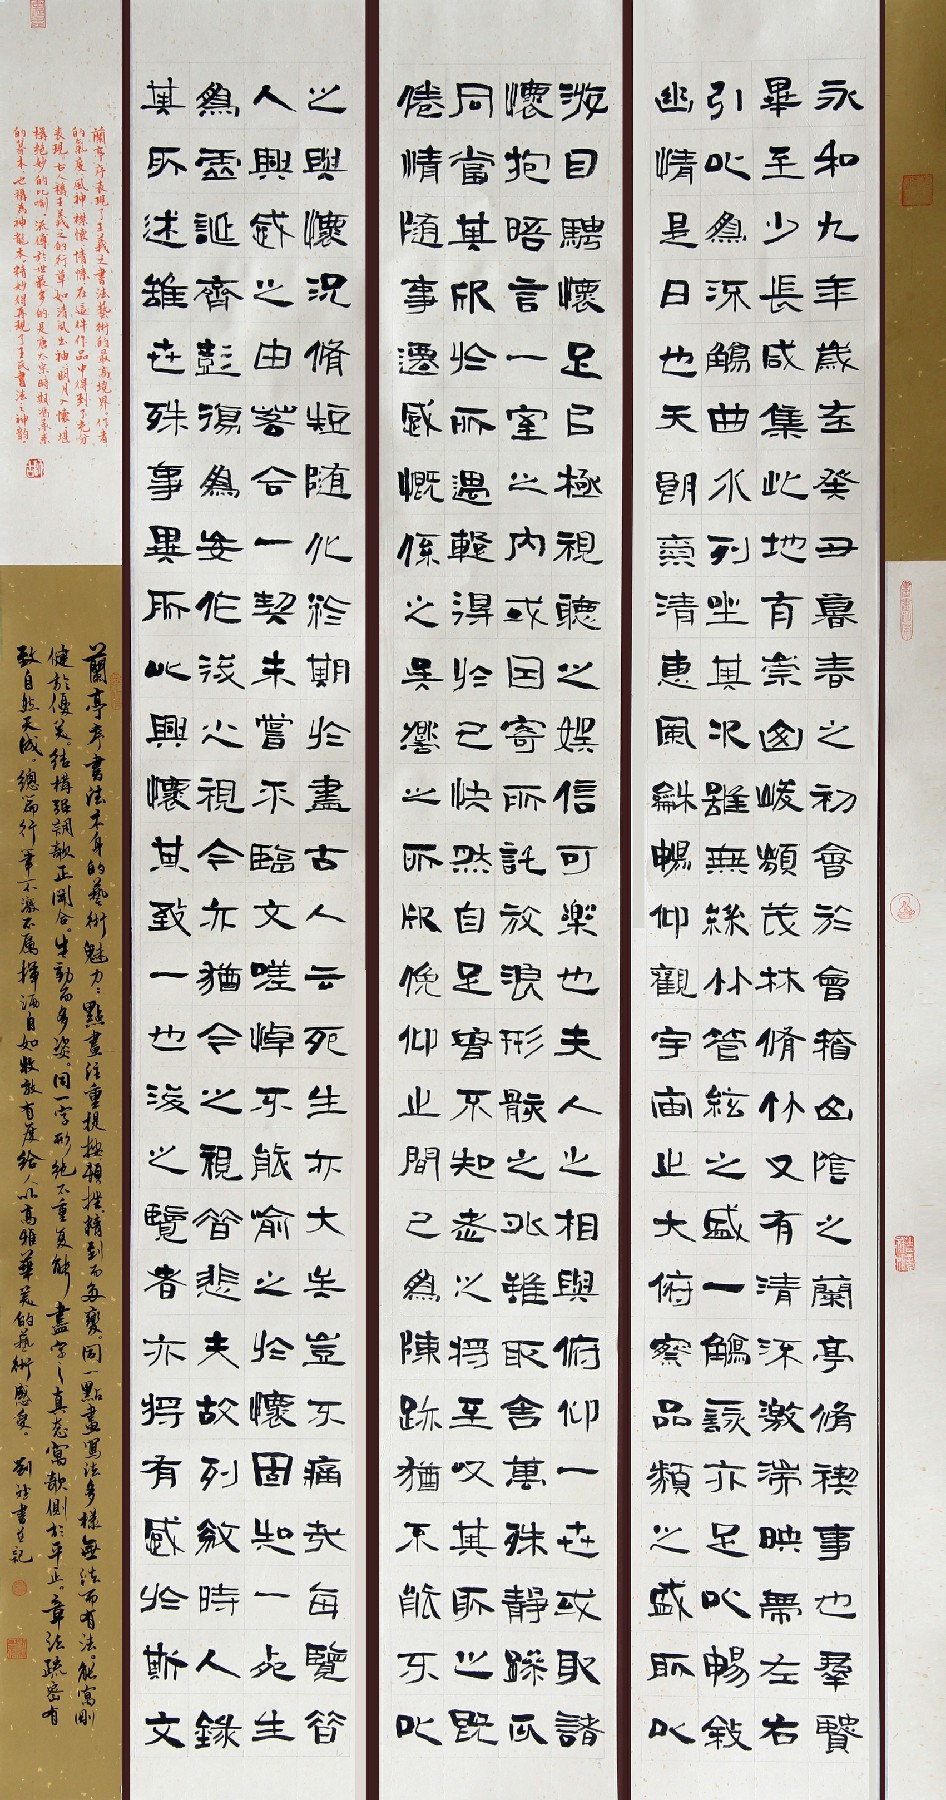 永和九年歲在癸丑暮春之初會於會稽山陰之蘭亭脩禊事也羣賢
畢至少長咸集此地有崇山峻領茂林脩竹又有清流激湍映帶左右
引以為流觴曲水列坐其次雖無絲竹管絃之盛一觴詠亦足以暢敘
幽情是日也天朗氣清惠風龢暢仰觀宇宙之大俯察品類之盛所以
遊目騁懷足以極視聽之娛信可樂也夫人之相與俯仰一世或取諸
懷抱晤言一室之內或因寄所託放浪形骸之外雖取舍萬殊靜躁不
同當其欣於所遇暫得於己快然自足曾不知老之將至叹其所之既
倦情隨事遷感慨係之矣曏之所欣俛仰之間已為陳跡猶不能不以
之興懷況脩短隨化終期於盡古人云死生亦大矣豈不痛哉每覽昔
人興感之由若合一契未嘗不臨文嗟悼不能喻之於懷固知一死生
為虛誕齊彭殤為妄作後之視今亦猶今之視昔悲夫故列敘時人錄
其所述雖世殊事異所以興懷其致一也後之覽者亦將有感於斯文
蘭亭序表現了王羲之書法藝術的最高境界,作者
的氣度、風神、襟懷、情愫,在這件作品中得到了充分
表現。古人稱王羲之的行草如清風出袖,明月入懷,堪
稱絕妙的比喻。流傳於世最多的是唐太宗時期馮承素
的摹本,也稱為神龍本,精妙得再現了王氏書法之神韵
蘭亭序書法本身的藝術魅力:點畫注重提按頓挫精到而多變。同一點畫寫法多樣無法而有法。能寓剛
健於優美。結構強調欹正開合。生動而多姿。同一字形絕不重复能盡字之真态寓欹側於平正。章法疏密有
致自然天成。總篇行筆不激不厲揮洒自如收放有度給人以高雅華美的藝術感受。劉 書并記